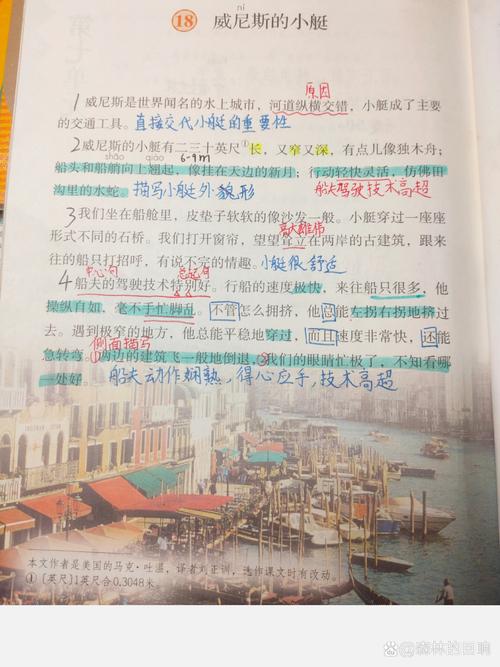 18 威尼斯的小艇
ní
原因
1 威尼斯是世界闻名的水上城市，河道纵横交错，小艇成了主要
的交通工具。直接交代小艇的重要性
2 威尼斯的小艇有二三十英尺①长，又窄又深，有点儿像独木舟；
shāo qiào 6-9m
船头和船艄向上翘起，像挂在天边的新月；行动轻快灵活，仿佛田
沟里的水蛇。描写小艇外貌形 船夫驾驶技术高超
3 我们坐在船舱里，皮垫子软软的像沙发一般。小艇穿过一座座
高大雄伟
形式不同的石桥。我们打开窗帘，望望耸立在两岸的古建筑，跟来
往的船只打招呼，有说不完的情趣。小艇很舒适
中心句 总起句
4 船夫的驾驶技术特别好。行船的速度极快，来往船只很多，他
操纵自如，毫不手忙脚乱。不管怎么拥挤，他总能左拐右拐地挤过
去。遇到极窄的地方，他总能平稳地穿过，而且速度非常快，还能
侧面描写
急转弯。①两边的建筑飞一般地倒退，②我们的眼睛忙极了，不知看哪
一处好。船夫动作娴熟，得心应手，技术高超
本文作者是美国的马克·吐温，译者刘正训，选作课文时有改动。
①〔英尺〕1英尺合0.3048米。